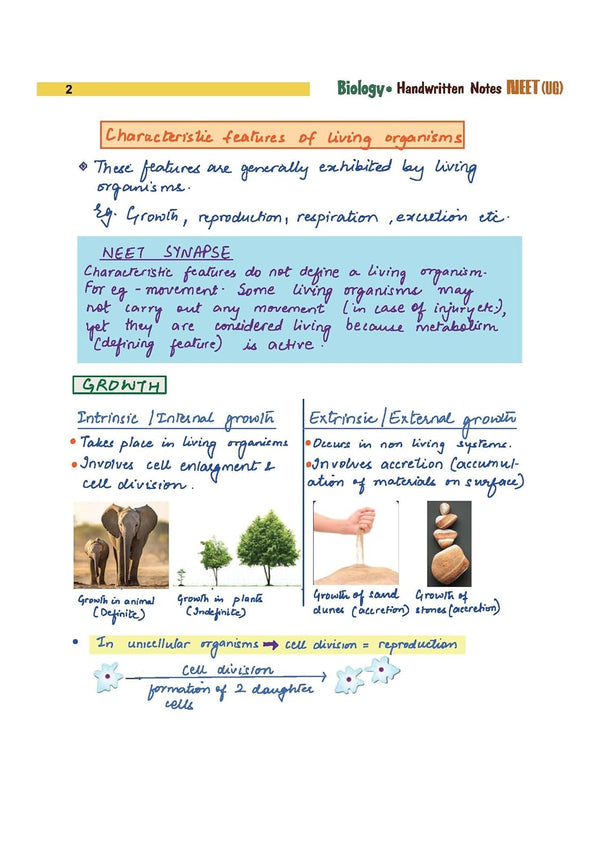 2
Biology• Handwritten Notes NEET (UG)
Characteristic features of living organisms
These features are generally exhibited by living
organisms.
Eg. Growth, reproduction, respiration, excretion etc.
NEET SYNAPSE
Characteristic features do not define a living organism.
For eg - movement. Some living organisms may
not carry out any movement (in case of injury etc),
yet they are considered living because metabolism
(defining feature) is active.
GROWTH
Intrinsic / Internal growth
• Takes place in living organisms
• Involves cell enlargment &
cell division.
Growth in animal
(Definite)
Growth in plants
(Indefinite)
Extrinsic / External growth
• Occurs in non living systems.
• Involves accretion (accumul-
ation of materials on surface)
Growth of sand
dunes (accretion)
Growth of
stones (accretion)
• In unicellular organisms → cell division = reproduction
cell division
formation of 2 daughter
cells